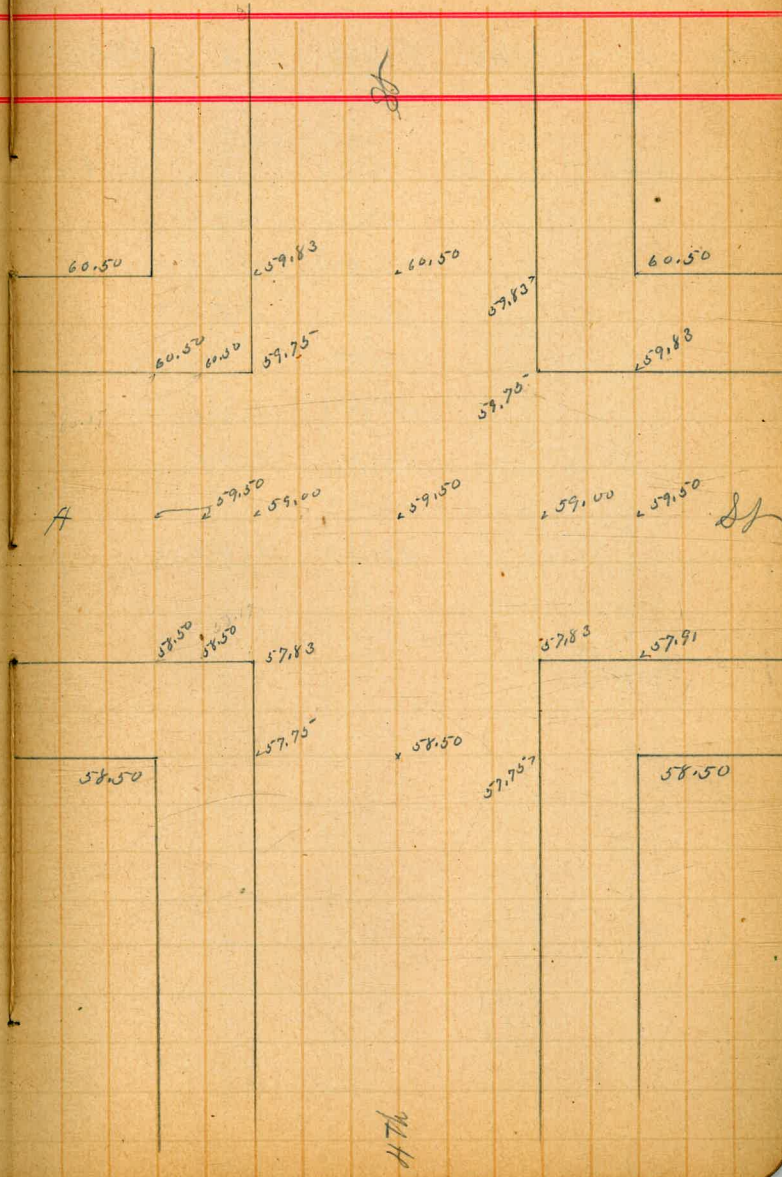 St
59.83
60.50
60.50
60.50
59.83
60.50
60.50
59.75
59.83
59.75
A
59.50
59.00
59.50
59.00
59.50
St
58.50
58.50
57.83
57.83
57.91
57.75
58.50
57.75
58.50
58.50
4th